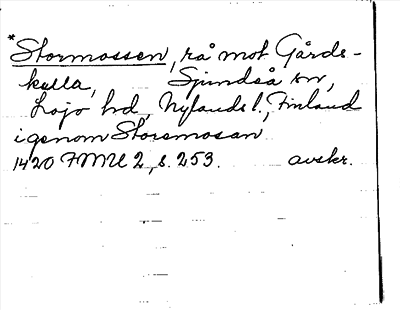 *
Stormossen, rå mot Gårds-
kulla, Sjundeå sn,
Lojo hd, Nylands l., Finland
igenom Storemosan
1420 FMU 2, s. 253. avskr.